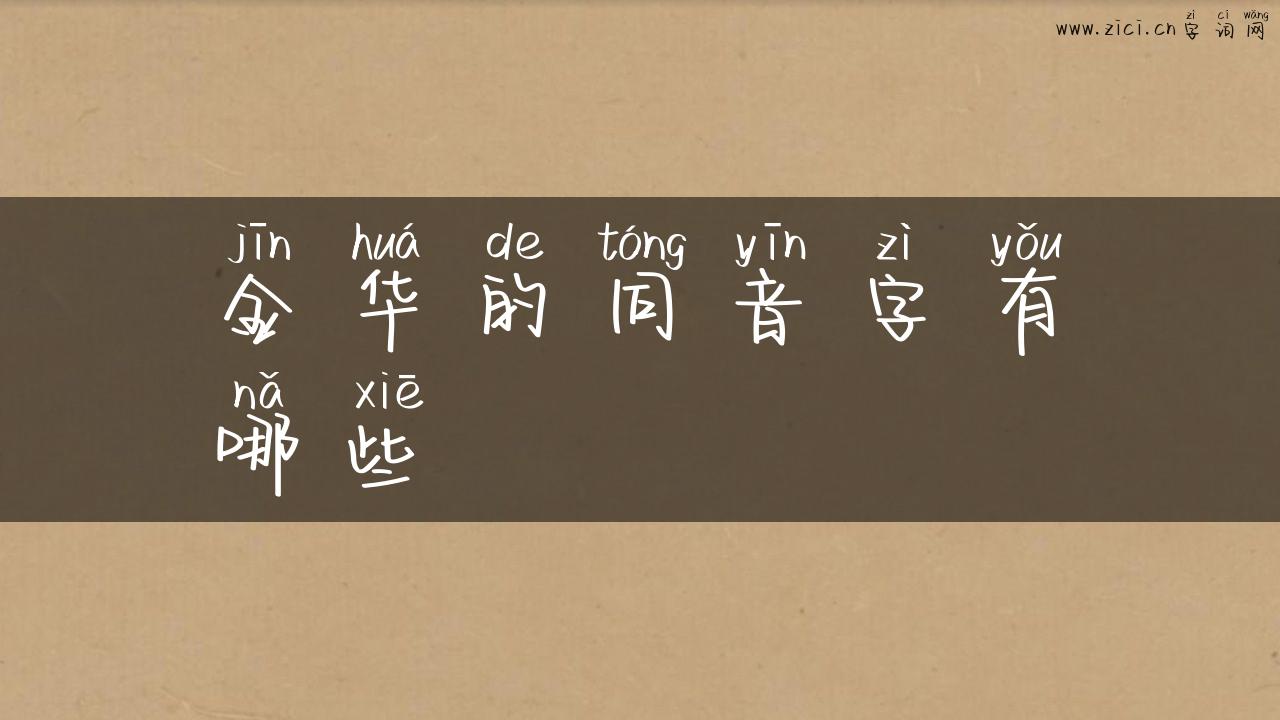 zì cí wǎng
www.zici.cn 字词网
jīn huá de tóng yīn zì yǒu
金华的同音字有
nǎ xiē
哪些